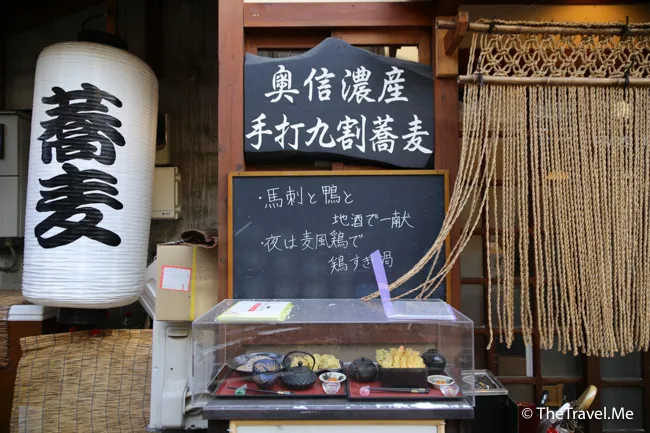 蕎麦
奥信濃産
手打九割蕎麦
・馬刺と鴨と
地酒で一献
・夜は麦風鶏で
鶏すき鍋
© TheTravel.Me